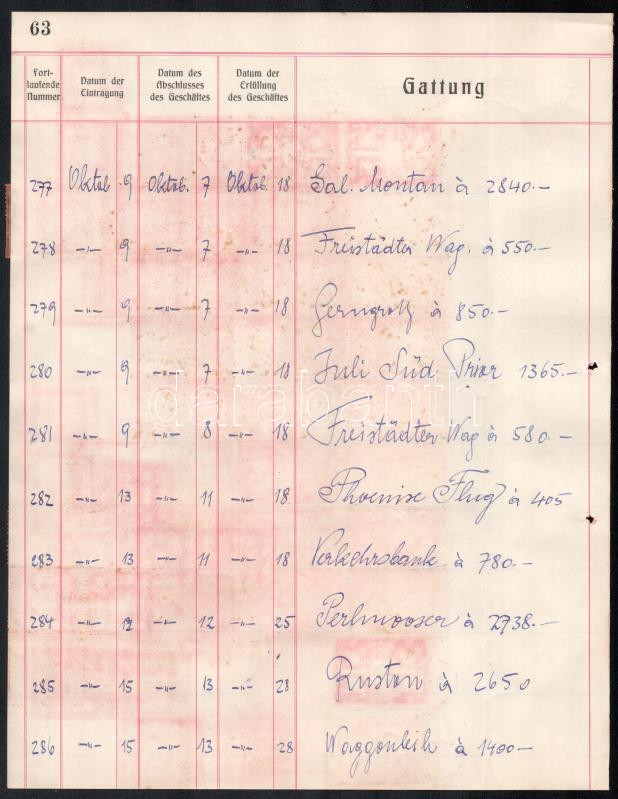 63
Fort-
laufende
Nummer
Datum der
Eintragung
Datum des
Abschlusses
des Geschäftes
Datum der
Erfüllung
des Geschäftes
Gattung
277 Oktob. 9 Oktob. 7 Oktob. 18 Sal. Montan à 2840.—
278 —"— 9 —"— 7 —"— 18 Freistädter Wag. à 550.—
279 —"— 9 —"— 7 —"— 18 Gerngroß à 850.—
280 —"— 9 —"— 7 —"— 18 Juli Süd Prior 1365.—
281 —"— 9 —"— 8 —"— 18 Freistädter Wag à 580.—
282 —"— 13 —"— 11 —"— 18 Phoenixe Flug à 405
283 —"— 13 —"— 11 —"— 18 Verkehrsbank à 780.—
284 —"— 12 —"— 12 —"— 25 Perlmooser à 2738.—
285 —"— 15 —"— 13 —"— 28 Ruston à 2650
286 —"— 15 —"— 13 —"— 28 Waggonleih à 1400—
darabanth